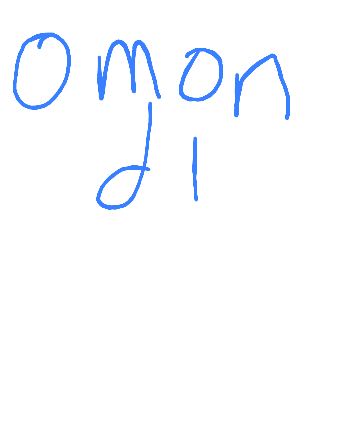 Omon
dI